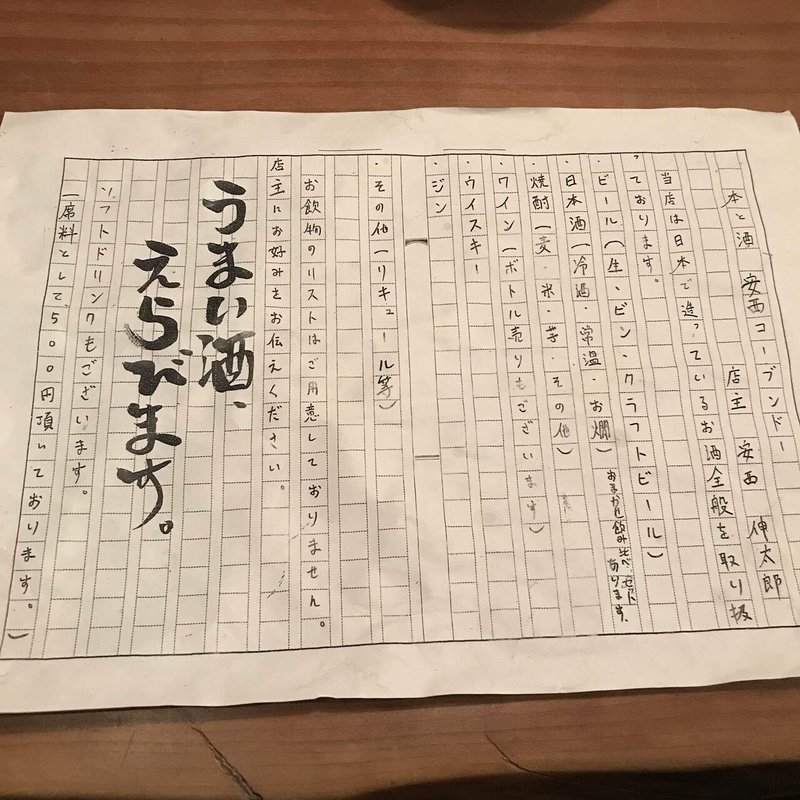 本と酒 安西コーブンドー
店主 安西 伸太郎
当店は日本で造っているお酒全般を取り扱
っております。
・ビール(生・ビン・クラフトビール)
・日本酒(冷酒・常温・お燗)おまかせ飲み比べセットあります。
・焼酎(麦・米・芋・その他)
・ワイン(ボトル売りもございます)
・ウイスキー
・ジン
・その他(リキュール等)
お飲物のリストはご用意しておりません。
店主にお好みをお伝えください。
うまい酒、
えらびます。
ソフトドリンクもございます。
一席料として、500円頂いております。)